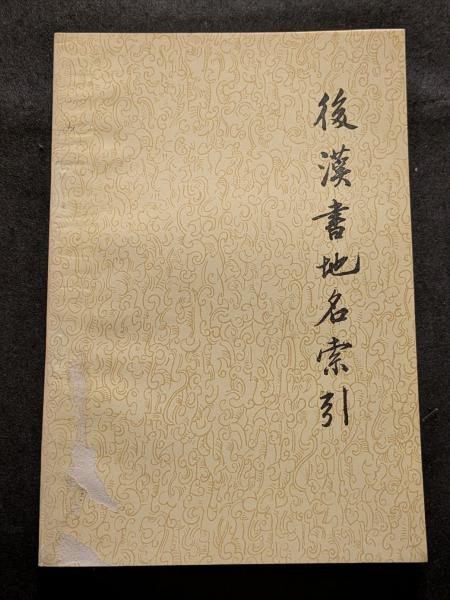 後漢書地名索引